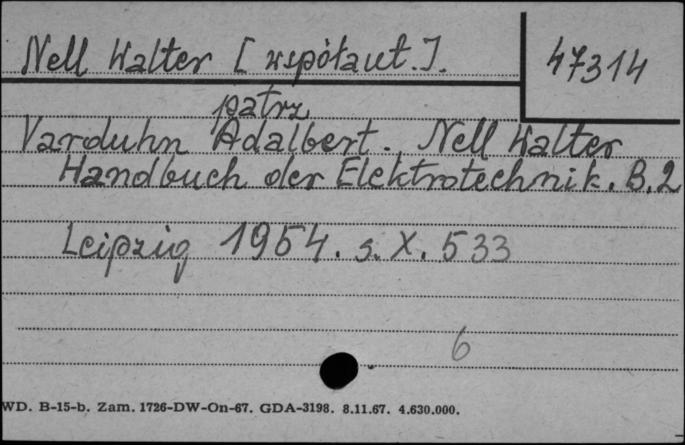 Nell Walter [współaut.].
47314
patrz
Varduhn Adalbert. Nell Walter
Handbuch der Elektrotechnik. B.2
Leipzig 1954. s. X. 533
6
WD. B-15-b. Zam. 1726-DW-On-67. GDA-3198. 8.11.67. 4.630.000.